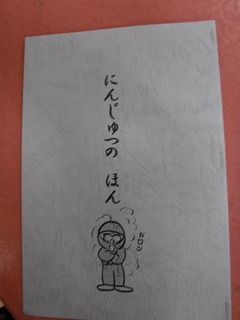 にんじゅつの ほん
ドロン